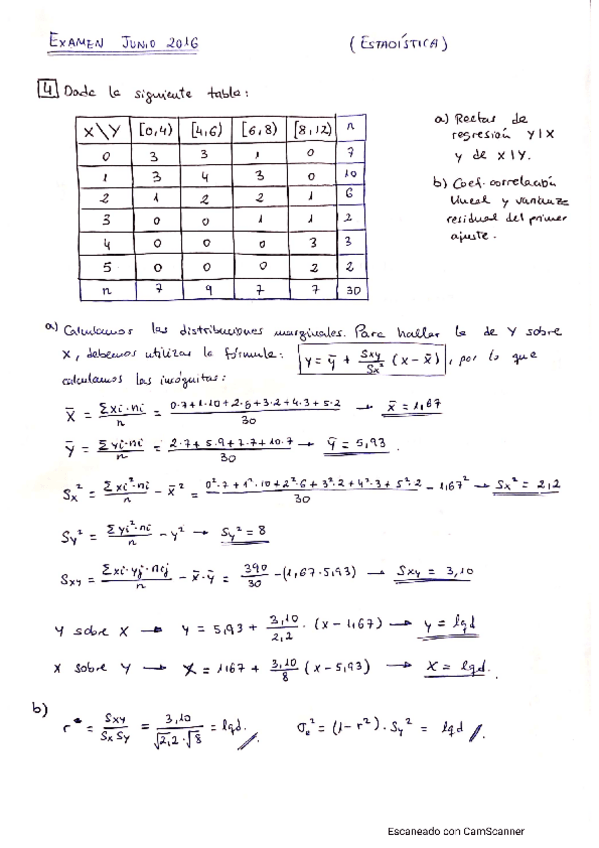 EXAMEN JUNIO 2016 (ESTADÍSTICA)
4 Dada la siguiente tabla:
X\Y [0,4) [4,6) [6,8) [8,12) n
0 3 3 1 0 7
1 3 4 3 0 10
2 1 2 2 1 6
3 0 0 1 1 2
4 0 0 0 3 3
5 0 0 0 2 2
n 7 9 7 7 30
a) Rectas de
regresión Y|X
y de X|Y.
b) Coef. correlación
lineal y varianza
residual del primer
ajuste.
a) Calculamos las distribuciones marginales. Para hallar la de Y sobre
X, debemos utilizar la fórmula: y = ȳ + Sxy/Sx² (x - x̄), por lo que
calculamos las incógnitas:
x̄ = Σxi·ni/n = 0·7+1·10+2·6+3·2+4·3+5·2/30 → x̄ = 1,67
ȳ = Σyi·ni/n = 2·7+5·9+7·7+10·7/30 → ȳ = 5,93.
Sx² = Σxi²·ni/n - x̄² = 0²·7+1²·10+2²·6+3²·2+4²·3+5²·2/30 - 1,67² → Sx² = 2,2
Sy² = Σyi²·ni/n - y² → Sy² = 8
Sxy = Σxi·yj·nij/n - x̄·ȳ = 390/30 - (1,67·5,93) → Sxy = 3,10
Y sobre X → y = 5,93 + 3,10/2,2 · (x - 1,67) → y = lqd
X sobre Y → X = 1,67 + 3,10/8 (x - 5,93) → X = lqd.
b)
r = Sxy/Sx Sy = 3,10/√2,2·√8 = lqd. σe² = (1-r²)·Sy² = lqd
Escaneado con CamScanner